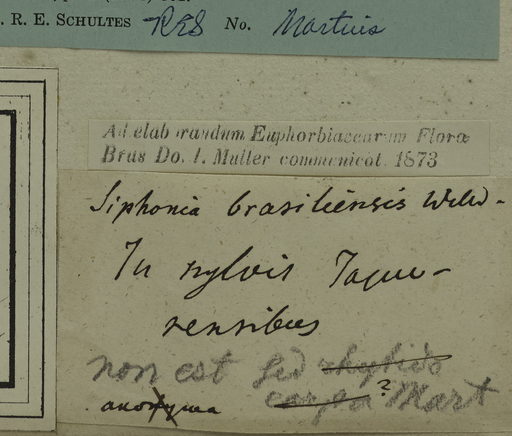 . R. E. SCHULTES RES No. Martius
Ad elaborandum Euphorbiacearum Floræ
Bras Do. J. Muller communicat. 1873
Siphonia brasiliensis Willd-
In sylvis Tapu-
rensibus
non est sed rhytido
anonyma carpa ? Mart